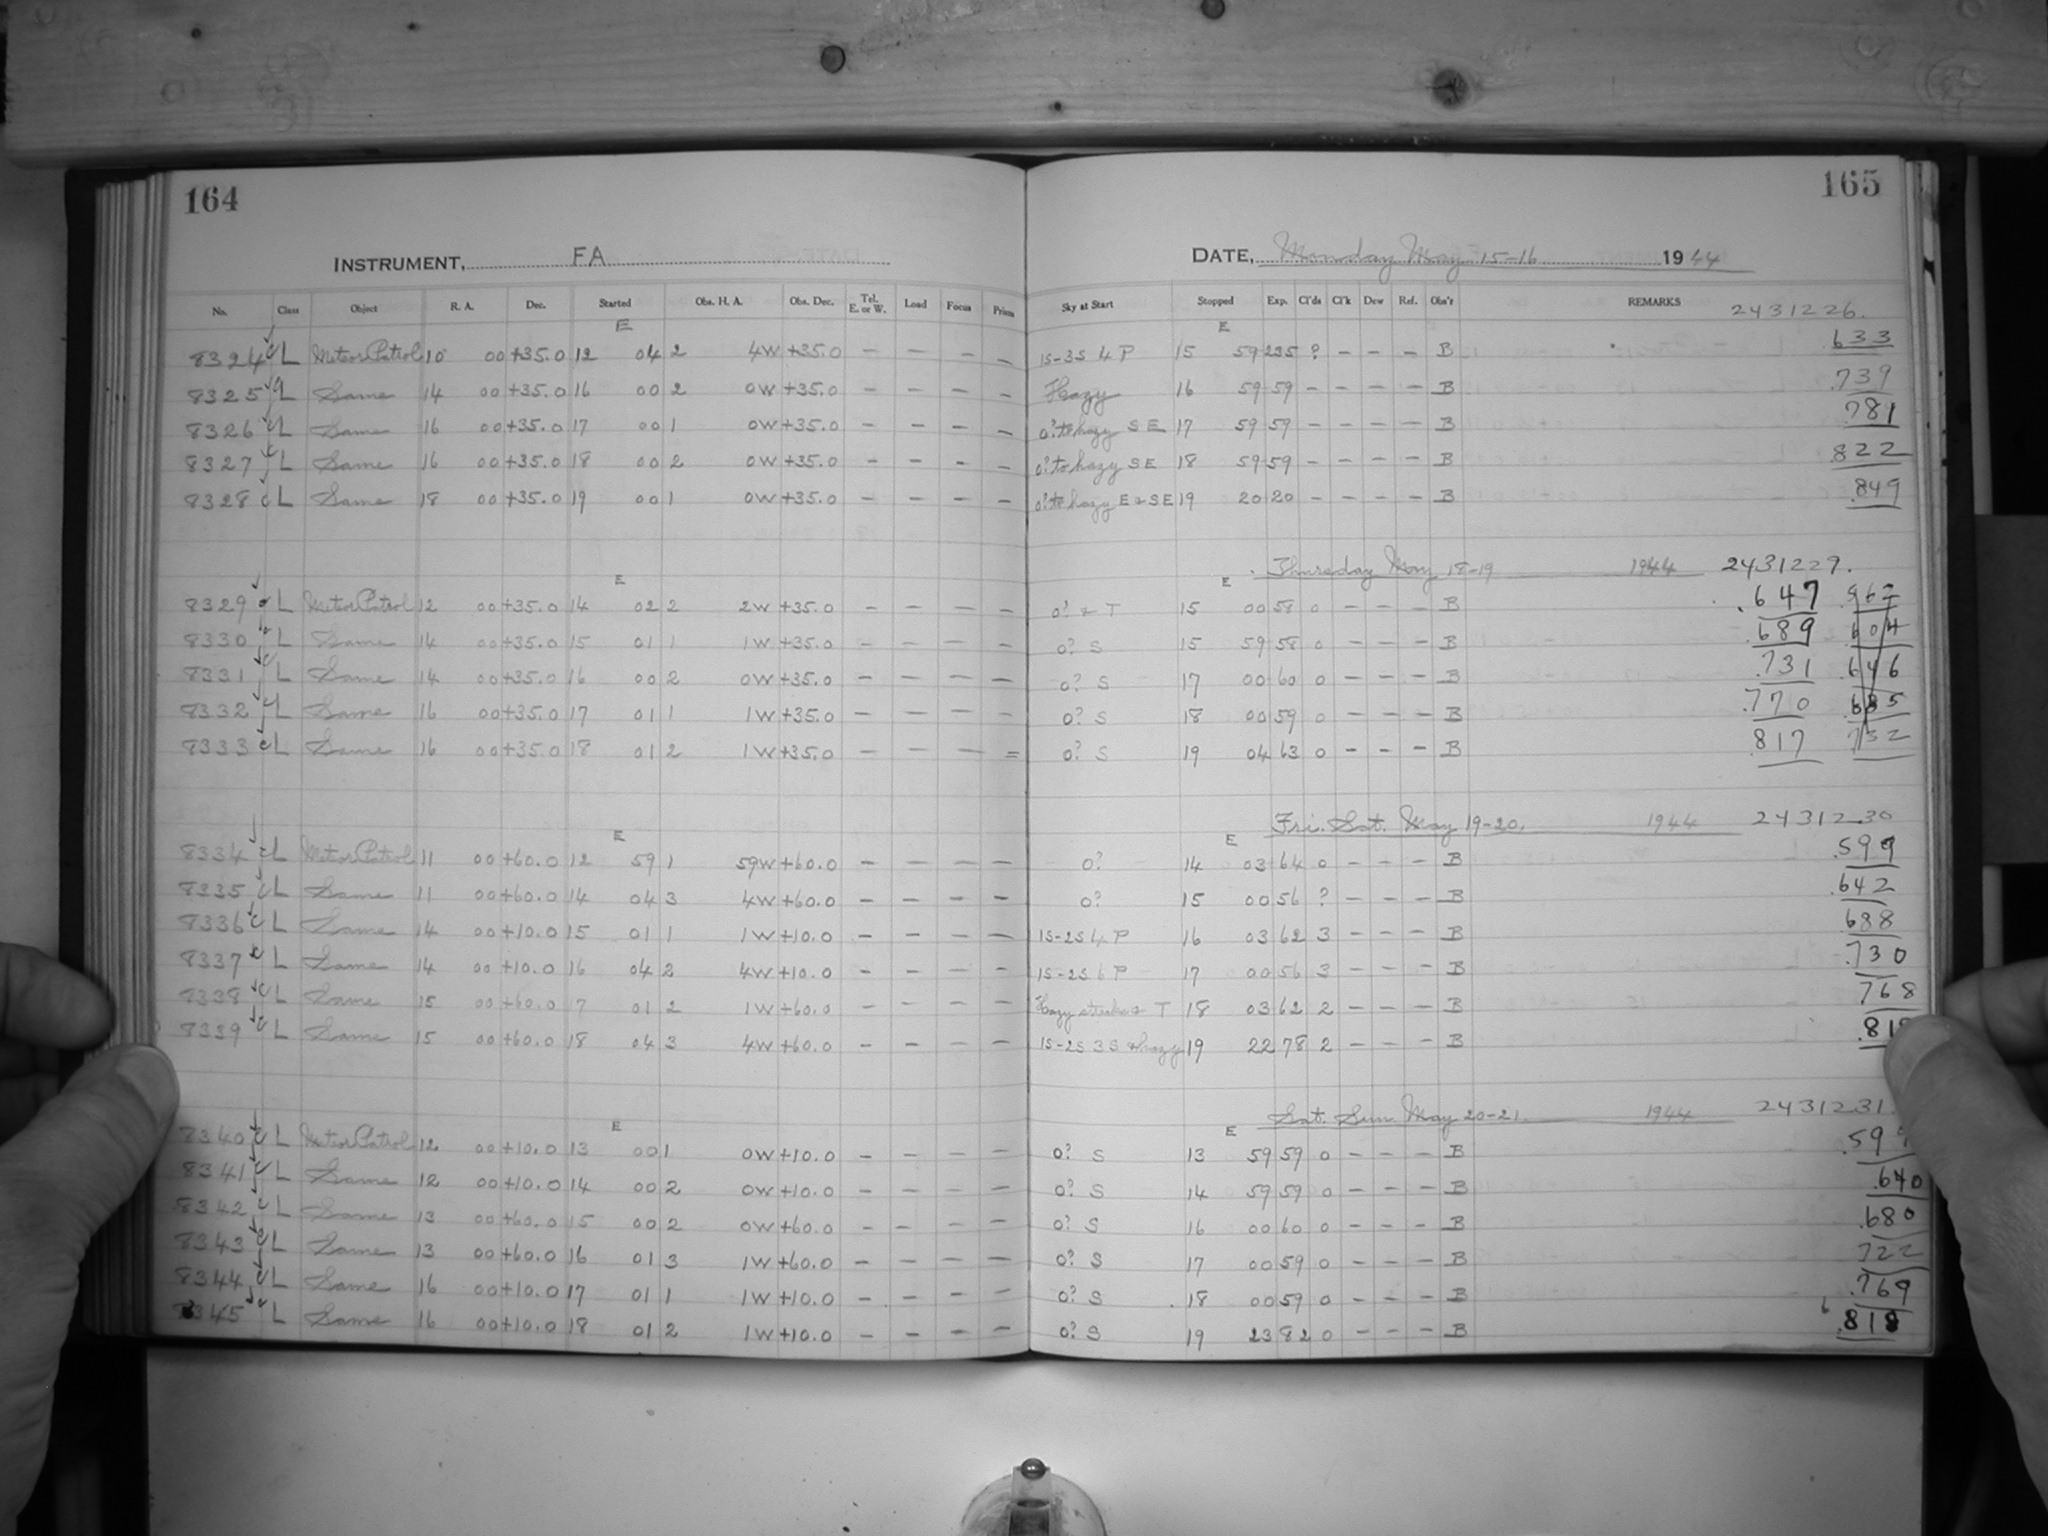 164
165
INSTRUMENT, FA
DATE, Monday May 15-16 1944
No. Class Object R. A. Dec. Started Obs. H. A. Obs. Dec. Tel. E. or W. Load Focus Prism Sky at Start Stopped Exp. Cl'ds Cl'k Dew Ref. Obs'r REMARKS 2431226.
E E
8324 c L Meteor Patrol 10 00 +35.0 12 04 2 4W +35.0 — — — — 1S-3S 4 P 15 59 235 ? — — — B .633
8325 c L Same 14 00 +35.0 16 00 2 0W +35.0 — — — — Hazy 16 59 59 — — — — B .739
8326 c L Same 16 00 +35.0 17 00 1 0W +35.0 — — — — 0? to hazy SE 17 59 59 — — — — B .781
8327 c L Same 16 00 +35.0 18 00 2 0W +35.0 — — — — 0? to hazy SE 18 59 59 — — — — B .822
8328 c L Same 18 00 +35.0 19 00 1 0W +35.0 — — — — 0? to hazy E & SE 19 20 20 — — — — B .849
Thursday May 18-19 1944 2431229.
E E
8329 c L Meteor Patrol 12 00 +35.0 14 02 2 2W +35.0 — — — — 0? & T 15 00 58 0 — — — B .647 .562
8330 c L Same 14 00 +35.0 15 01 1 1W +35.0 — — — — 0? S 15 59 58 0 — — — B .689 .604
8331 c L Same 14 00 +35.0 16 00 2 0W +35.0 — — — — 0? S 17 00 60 0 — — — B .731 .646
8332 c L Same 16 00 +35.0 17 01 1 1W +35.0 — — — — 0? S 18 00 59 0 — — — B .770 .685
8333 c L Same 16 00 +35.0 18 01 2 1W +35.0 — — — = 0? S 19 04 63 0 — — — B .817 .732
Fri. Sat. May 19-20. 1944 2431230
E E
8334 c L Meteor Patrol 11 00 +60.0 12 59 1 59W +60.0 — — — — 0? 14 03 64 0 — — — B .599
8335 c L Same 11 00 +60.0 14 04 3 4W +60.0 — — — — 0? 15 00 56 ? — — — B .642
8336 c L Same 14 00 +10.0 15 01 1 1W +10.0 — — — — 1S-2S 4 P 16 03 62 3 — — — B .688
8337 c L Same 14 00 +10.0 16 04 2 4W +10.0 — — — — 1S-2S 6 P 17 00 56 3 — — — B .730
8338 c L Same 15 00 +60.0 17 01 2 1W +60.0 — — — — Hazy streaks T 18 03 62 2 — — — B .768
8339 c L Same 15 00 +60.0 18 04 3 4W +60.0 — — — — 1S-2S 3S & hazy 19 22 78 2 — — — B .81
Sat. Sun. May 20-21. 1944 2431231.
E E
8340 c L Meteor Patrol 12 00 +10.0 13 00 1 0W +10.0 — — — — 0? S 13 59 59 0 — — — B .59
8341 c L Same 12 00 +10.0 14 00 2 0W +10.0 — — — — 0? S 14 59 59 0 — — — B .640
8342 c L Same 13 00 +60.0 15 00 2 0W +60.0 — — — — 0? S 16 00 60 0 — — — B .680
8343 c L Same 13 00 +60.0 16 01 3 1W +60.0 — — — — 0? S 17 00 59 0 — — — B .722
8344 c L Same 16 00 +10.0 17 01 1 1W +10.0 — — — — 0? S 18 00 59 0 — — — B .769
8345 c L Same 16 00 +10.0 18 01 2 1W +10.0 — — — — 0? S 19 23 82 0 — — — B .818